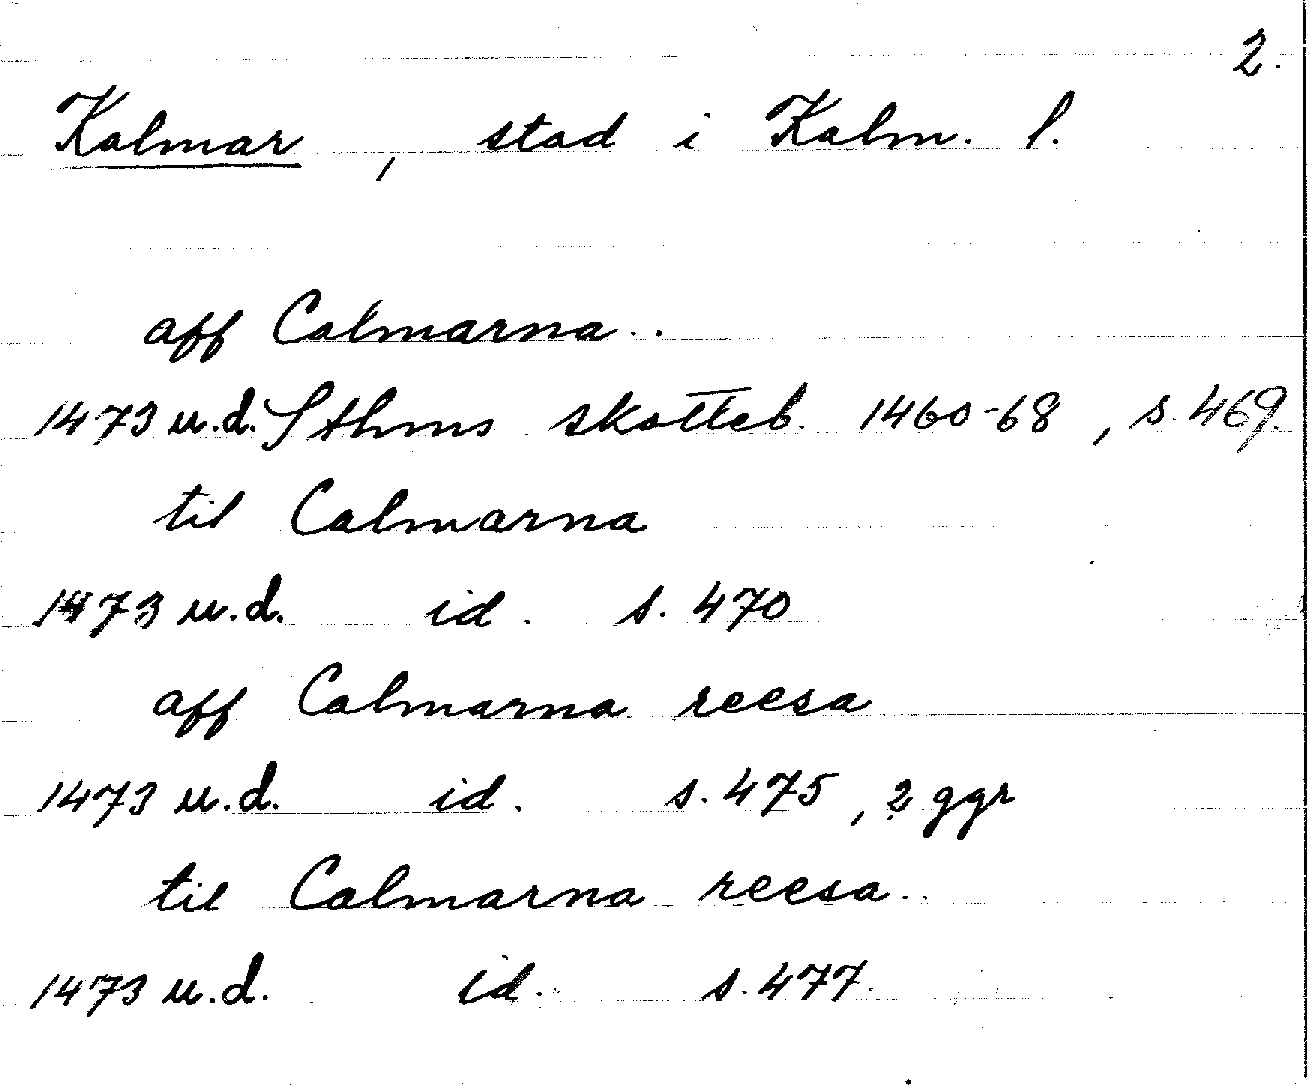 2.
Kalmar, stad i Kalm. l.
aff Calmarna
1473 u.d. Sthms skotteb. 1460-68, s. 469.
til Calmarna
1473 u.d. id. s. 470
aff Calmarna reesa
1473 u.d. id. s. 475, 2 ggr
til Calmarna reesa
1473 u.d. id. s. 477.